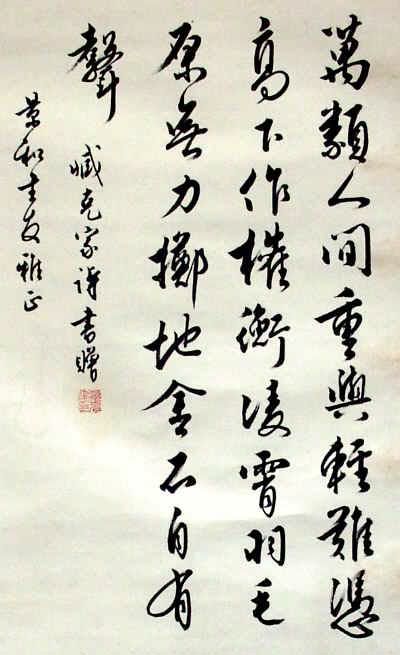 萬類人間重與輕難憑
高下作權衡凌霄羽毛
原無力擲地金石自有
聲
臧克家詩書贈
和友雅正